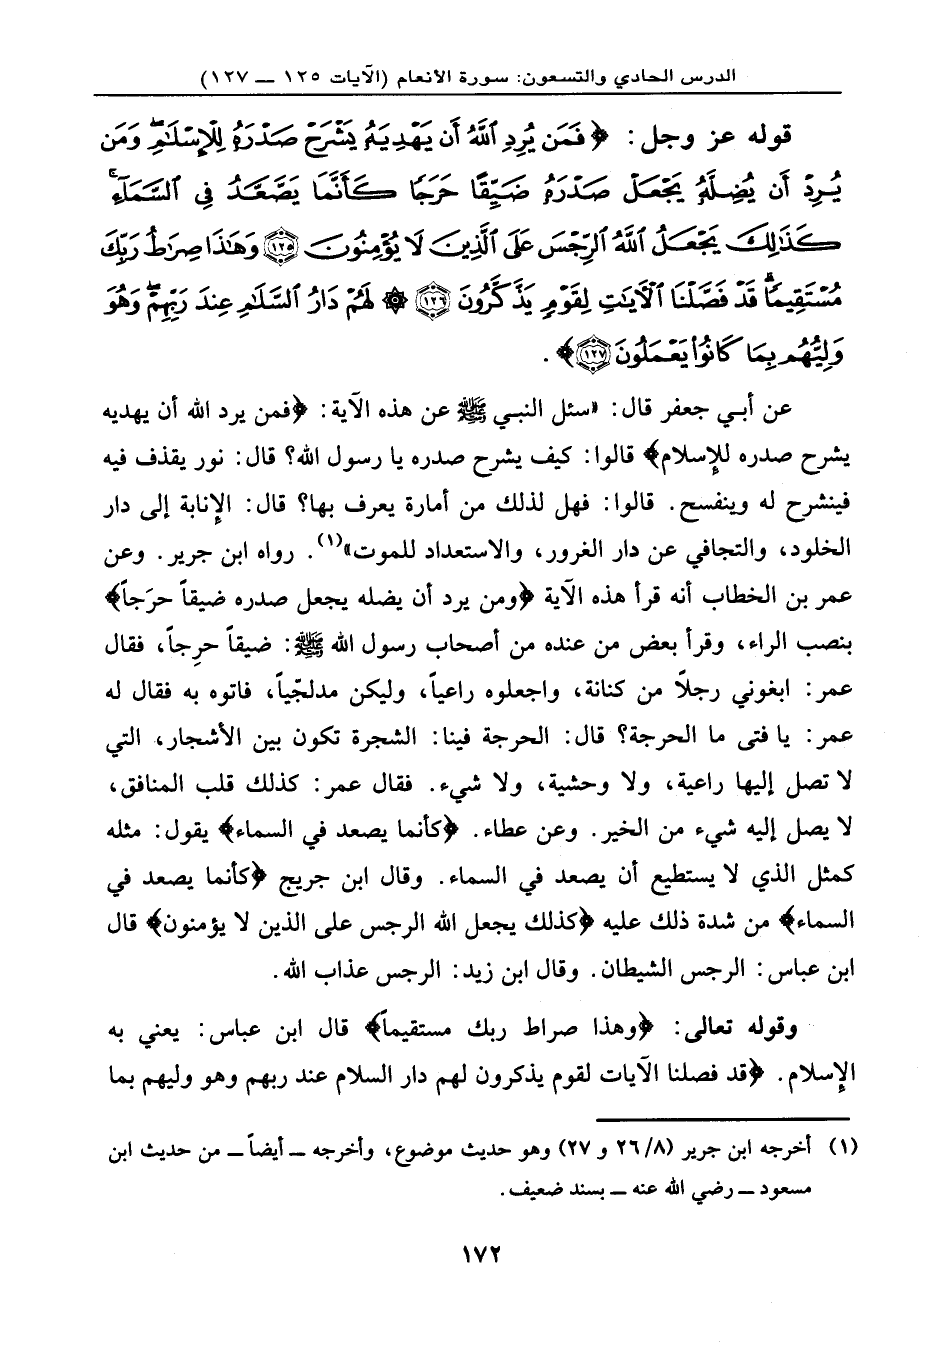 الدرس الحادي والتسعون: سورة الأنعام (الآيات ١٢٥ ــ ١٢٧)
قوله عز وجل: ﴿ فَمَن يُرِدِ ٱللَّهُ أَن يَهْدِيَهُۥ يَشْرَحْ صَدْرَهُۥ لِلْإِسْلَٰمِ ۖ وَمَن
يُرِدْ أَن يُضِلَّهُۥ يَجْعَلْ صَدْرَهُۥ ضَيِّقًا حَرَجًا كَأَنَّمَا يَصَّعَّدُ فِى ٱلسَّمَآءِ ۚ
كَذَٰلِكَ يَجْعَلُ ٱللَّهُ ٱلرِّجْسَ عَلَى ٱلَّذِينَ لَا يُؤْمِنُونَ ١٢٥ وَهَٰذَا صِرَٰطُ رَبِّكَ
مُسْتَقِيمًا ۗ قَدْ فَصَّلْنَا ٱلْءَايَٰتِ لِقَوْمٍ يَذَّكَّرُونَ ١٢٦ ۞ لَهُمْ دَارُ ٱلسَّلَٰمِ عِندَ رَبِّهِمْ ۖ وَهُوَ
وَلِيُّهُم بِمَا كَانُوا۟ يَعْمَلُونَ ١٢٧ ﴾ .
عن أبي جعفر قال: «سئل النبي ﷺ عن هذه الآية: ﴿فمن يرد الله أن يهديه
يشرح صدره للإسلام﴾ قالوا: كيف يشرح صدره يا رسول الله؟ قال: نور يقذف فيه
فينشرح له وينفسح. قالوا: فهل لذلك من أمارة يعرف بها؟ قال: الإنابة إلى دار
الخلود، والتجافي عن دار الغرور، والاستعداد للموت»(١). رواه ابن جرير. وعن
عمر بن الخطاب أنه قرأ هذه الآية ﴿ومن يرد أن يضله يجعل صدره ضيقاً حرَجاً﴾
بنصب الراء، وقرأ بعض من عنده من أصحاب رسول الله ﷺ: ضيقاً حرِجاً، فقال
عمر: ابغوني رجلاً من كنانة، واجعلوه راعياً، وليكن مدلجّياً، فاتوه به فقال له
عمر: يا فتى ما الحرجة؟ قال: الحرجة فينا: الشجرة تكون بين الأشجار، التي
لا تصل إليها راعية، ولا وحشية، ولا شيء. فقال عمر: كذلك قلب المنافق،
لا يصل إليه شيء من الخير. وعن عطاء. ﴿كأنما يصعد في السماء﴾ يقول: مثله
كمثل الذي لا يستطيع أن يصعد في السماء. وقال ابن جريج ﴿كأنما يصعد في
السماء﴾ من شدة ذلك عليه ﴿كذلك يجعل الله الرجس على الذين لا يؤمنون﴾ قال
ابن عباس: الرجس الشيطان. وقال ابن زيد: الرجس عذاب الله.
وقوله تعالى: ﴿وهذا صراط ربك مستقيماً﴾ قال ابن عباس: يعني به
الإسلام. ﴿قد فصلنا الآيات لقوم يذكرون لهم دار السلام عند ربهم وهو وليهم بما
(١) أخرجه ابن جرير (٢٦/٨ و ٢٧) وهو حديث موضوع، وأخرجه ــ أيضاً ــ من حديث ابن
مسعود ــ رضي الله عنه ــ بسند ضعيف.
١٧٢